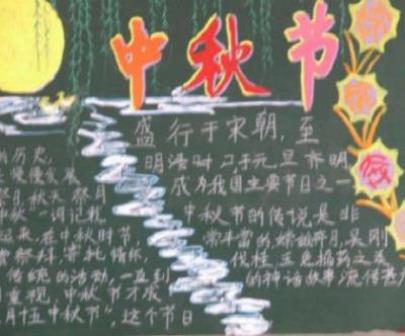 中秋节
盛行于宋朝,至
明清时,
成为我国主要节日之一
中秋节的传说是非
常丰富的嫦娥奔月,吴刚
伐桂,玉兔捣药之类
的神话故事流传甚
的历史,
慢慢发展
祭月,秋天祭月
中秋一词记载
在中秋时节,
寄托情怀,
传统的活动,一直到
重视,中秋节才成
月十五中秋节",这个节日